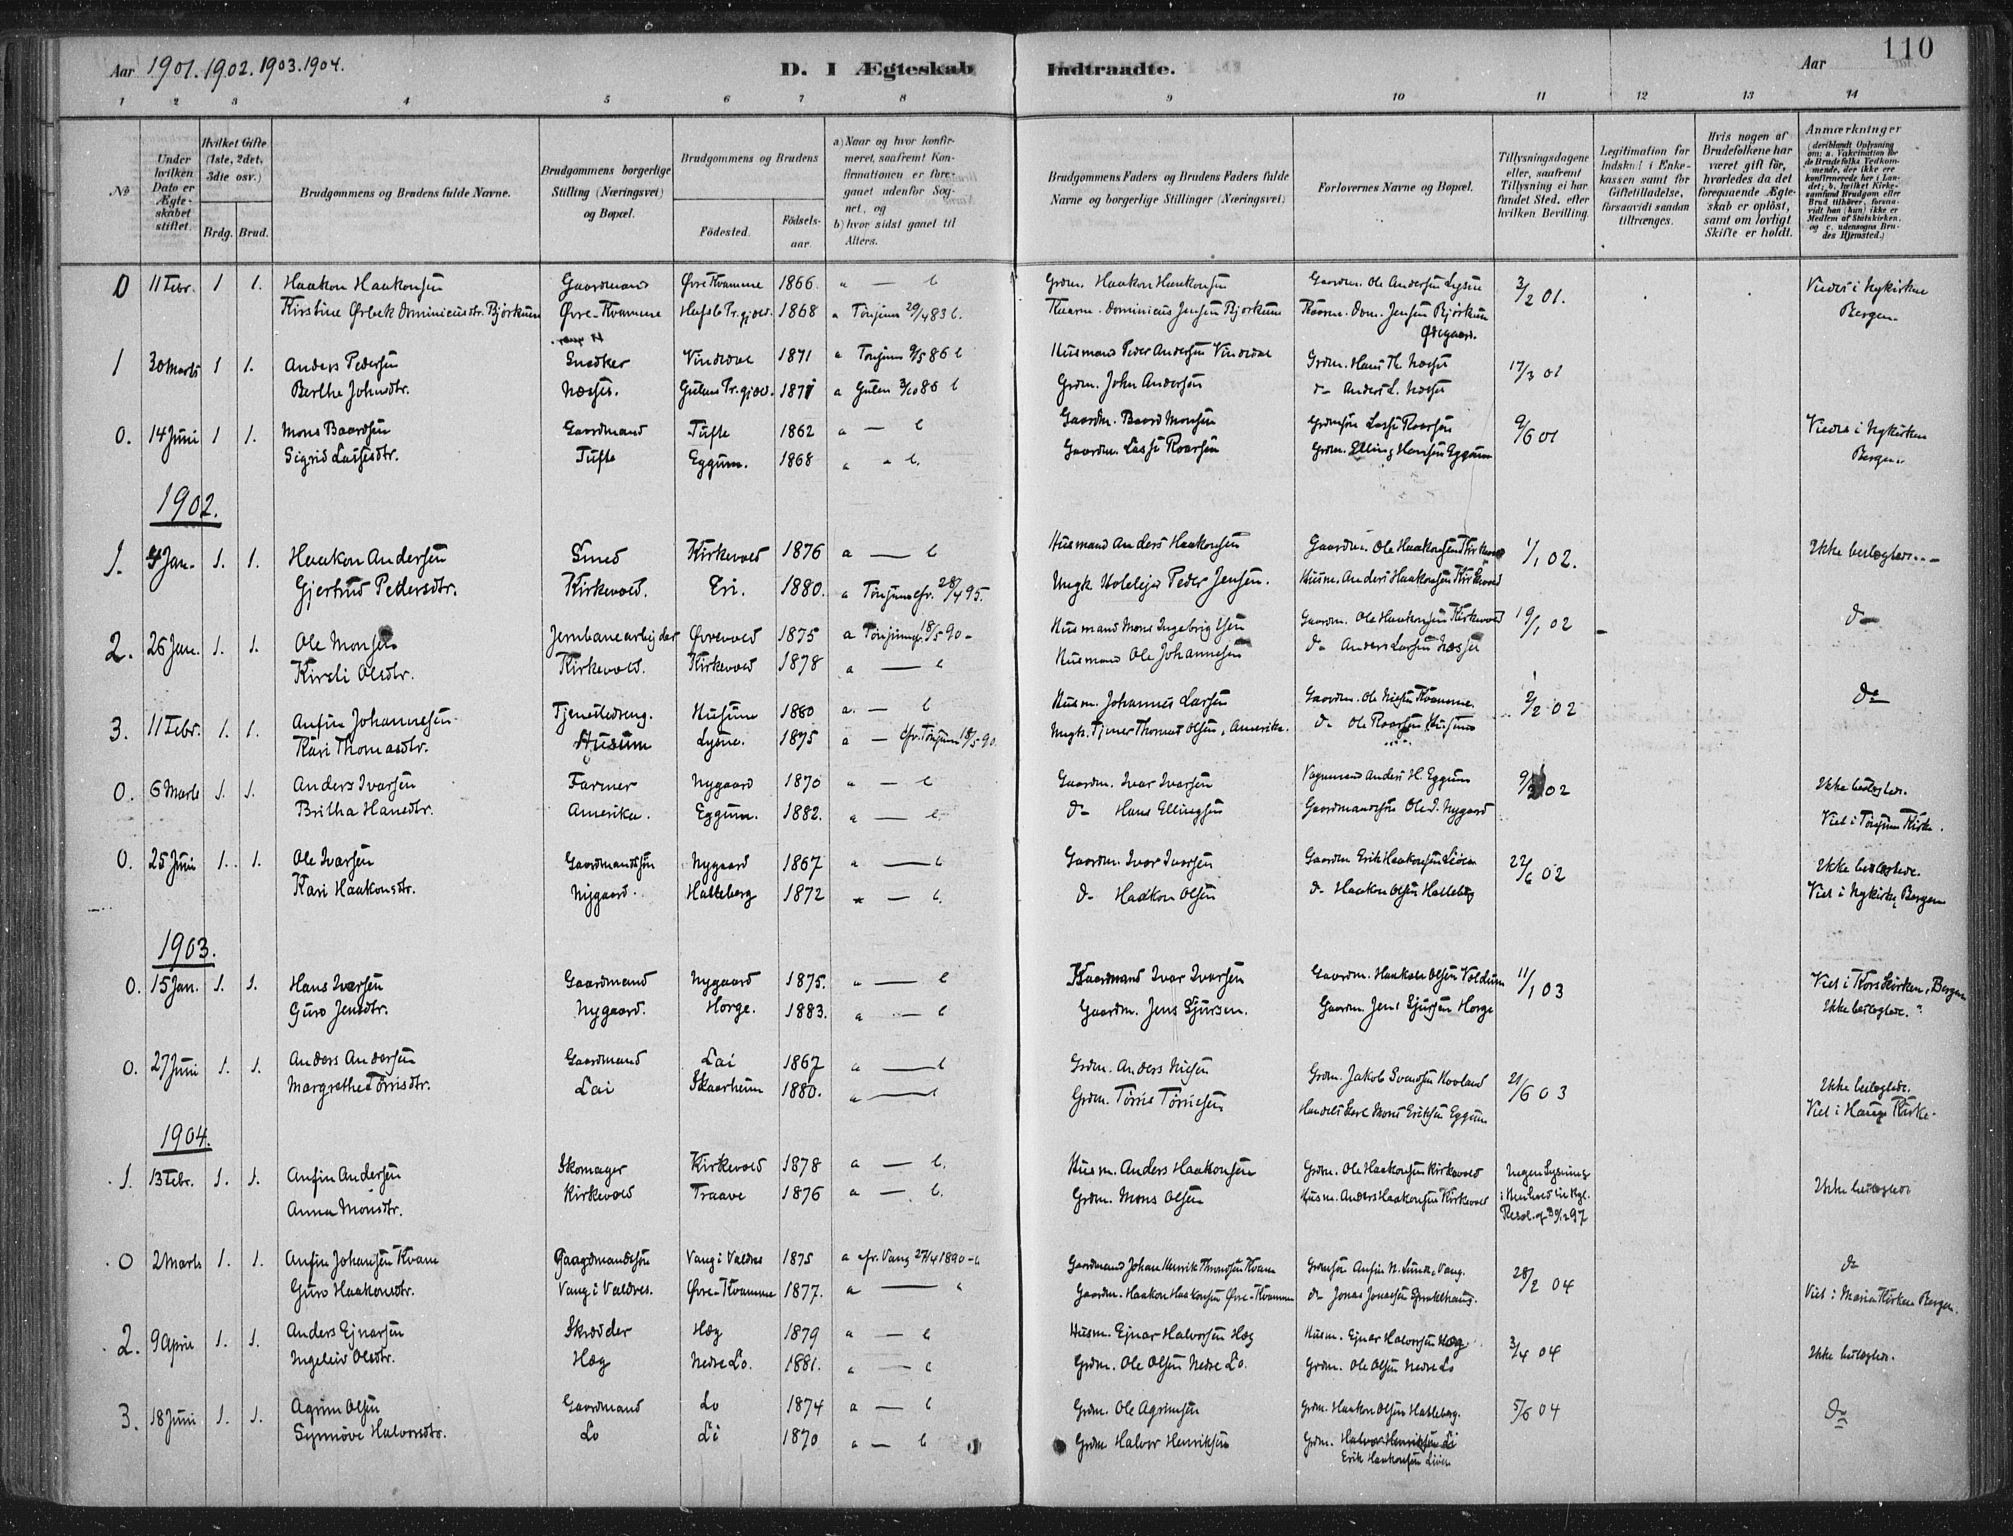 110
Aar 1901. 1902. 1903. 1904.
D. I Ægteskab Indtraadte.
Aar
1 2 3 4 5 6 7 8 9 10 11 12 13 14
No
Under hvilken Dato er Ægteskabet stiftet.
Hvilket Gifte (1ste, 2det, 3die osv.)
Brdg. Brud.
Brudgommens og Brudens fulde Navne.
Brudgommens borgerlige Stilling (Næringsvei) og Bopæl.
Brudgommens og Brudens
Fødested.
Fødselsaar.
a) Naar og hvor konfirmeret, saafremt Konfirmationen er foregaaet udenfor Sognet, og
b) hvor sidst gaaet til Alters.
Brudgommens Faders og Brudens Faders fulde Navne og borgerlige Stillinger (Næringsvei)
Forlovernes Navne og Bopæl.
Tillysningsdagene eller, saafremt Tillysning ei har fundet Sted, efter hvilken Bevilling.
Legitimation for Indskud i Enkekassen samt for Giftetilladelse, forsaavidt saadan tiltrænges.
Hvis nogen af Brudefolkene har været gift før, hvorledes da det foregaaende Ægteskab er opløst, samt om lovligt Skifte er holdt.
Anmærkninger (deriblandt Oplysning om: a. Vakcination for de Brudefolks Vedkommende, der ikke ere konfirmerede her i Landet; b. hvilket Kirkesamfund Brudgom eller Brud tilhører, forsaavidt han (hun) ikke er Medlem af Statskirken, og c. udensogns Brudes Hjemsted.)
0 11 Febr. 1 1. Haakon Haakonsen Gaardmand Øvre Kvamme 1866. a — b Grdm. Haakon Haakonsen Gaardm. Ole Andersen Lysne 3/2 01. Viede i Nykirken
Kirstine Ørbek Dominicusdtr. Bjørkum Øvre-Kvamme Hafslo Pr.gjæld. 1868 a Tönjum 29/4 83 b. Kaarm. Dominicus Jensen Bjørkum Kaarm. Dom. Jensen Bjørkum Bergen.
Ødegaard.
1 30 Marts 1 1. Anders Pedersen Snedker Vindedal 1871 a Tonjum 9/5 86 b Husmand Peder Andersen Vindedal Grdm. Hans Th. Næsse 17/3 01
Berthe Johnsdtr. Næsse. Gulens Pr.gjæld. 1871 a Gulen 3/10 86 b Grdm. John Andersen do Anders L. Næsse
0. 14 Juni 1 1. Mons Baardsen Gaardmand Tufte 1862 a — b Gaardm. Baard Monsen Grdmsøn Lasse Roarsen 9/6 01 Viede i Nykirken
Sigrid Lassesdtr. Tufte Eggum. 1868 a - b. Gaardm. Lasse Roarsen Grdm. Elling Hansen Eggum Bergen.
1902.
1. 4 Jan. 1. 1. Haakon Andersen Smed Kirkevold 1876 a — b Husmand Anders Haakonsen Gaardm. Ole Haakonsen Kirkevold 1/1 02. Ikke beslegtede.
Gjertrud Pedersdtr. Kirkevold. Eri. 1880. a Tonjums cfr. 28/4 95. Ungk. Peder Jensen. Husm. Anders Haakonsen Kirkevold
2. 26 Jan. 1. 1. Ole Monsen Jernbanearbeider Øvrevold 1875 a Tönjum 18/5 90 - Husmand Mons Ingebrigtsen Gaardm. Ole Haakonsen Kirkevold 19/1 02 do
Kirsti Olsdtr. Kirkevold. Kirkevold 1878 a — b Husmand Ole Johannesen do Anders Larsen Næsse
3. 11 Febr. 1. 1. Anfin Johannesen Tjenestedreng. Husum 1880 a. — b Husm. Johannes Larsen Gaardm. Ole Nilsen Kvamme. 2/2 02 do
Kari Thomasdtr. Husum Lysne. 1875 a — cfr. Tonjum 18/5 90. Ungk. Tjener Thomas Olsen, Amerika. do Ole Roarsen Husum
0. 6 Marts 1. 1. Anders Ivarsen Farmer Nygaard 1870 a — b Gaardm. Ivar Ivarsen Anders H. Eggum 9/2 02 Ikke beslegtede.
Britha Hansdtr. Amerika. Eggum. 1882. a — b. do Hans Ellingsen Gaardmandssøn Ole I. Nygaard Viet i Tönjum Kirke.
0. 25 Juni 1. 1. Ole Ivarsen Gaardmandssøn Nygaard 1867 a — b Gaardm. Ivar Ivarsen Gaardm Erik Haakonsen Lioen 22/6 02 Ikke beslegtede.
Kari Haakonsdtr. Nygaard. Halleberg 1872 a — b. do Haakon Olsen do Haakon Olsen Halleberg Viet i Nykirke, Bergen
1903.
0. 15 Jan. 1. 1. Hans Ivarsen Gaardmand Nygaard 1875. a — b Gaardmand Ivar Ivarsen Gaardm. Haakon Olsen Voldum 11/1 03 Viet i Korskirken, Bergen
Guro Jensdtr. Nygaard. Horge. 1883. a — b Gaardm. Jens Sjursen. Gaardm. Jens Sjursen Horge Ikke beslegtede.
0. 27 Juni 1. 1. Anders Andersen Gaardmand Lai 1867 a — b Grdm. Anders Nilsen Grdm. Jakob Svendsen Hovland 21/6 03 Ikke beslegtede.
Margrethe Törrisdtr. Lai Skaarheim 1880. a — b Grdm. Törris Törrisen Handelsbest Mons Eriksen Eggum Viet i Hauge Kirke.
1904.
1. 13 Febr. 1. 1. Anfin Andersen Skomager Kirkevold 1878 a — b. Husm. Anders Haakonsen Grdm. Ole Haakonsen Kirkevold Ingen Lysning
Anna Monsdtr. Kirkevold Traave 1876 a — b. Grdm. Mons Olsen Husm. Anders Haakonsen Kirkevold i Henhold til Kgl. Ikke beslegtede
Resol. af 97
0 2 Marts 1. 1. Anfin Johansen Kvam Gaardmandssøn Vang i Valdres 1875 a cfr. Vang 27/4 1890 - b Gaardmand Johan Henrik Throndsen Kvam Grdmsøn Anfin Vang. 28/2 04 do
Guro Haakonsdtr. Vang i Valdres. Øvre-Kvamme 1877. a — " Gaardm. Haakon Haakonsen Øvre-Kvamme do Jonas Jonassen Viet i Mariakirken Bergen.
2. 9 April 1. 1. Anders Ejnarsen Skrædder Hæg 1879 a — b Husm. Ejnar Halvorsen Hæg Husm. Ejnar Halvorsen Hæg 3/4 04
Ingeleiv Olsdtr. Hæg Nedre Lo. 1881. a — b Grdm. Ole Olsen Nedre Lo. Grdm. Ole Olsen Nedre Lo Ikke beslegtede.
3. 18 Juni 1. 1. Agrim Olsen Gaardmand Lo 1874 a — b Grdm. Ole Agrimsen Grdm. Haakon Olsen Halleberg. 5/6 04 do
Synnöve Halvorsdtr. Lo Li 1870 a — b Grdm Halvor Henriksen Grdm. Halvor Henriksen Li
Erik Haakonsen Lioen